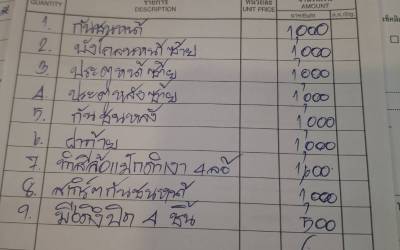 QUANTITY รายการ DESCRIPTION UNIT PRICE AMOUNT
1. กันชนหน้า 1,000
2. บังโคลนหน้าซ้าย 1,000
3 ประตูหน้าซ้าย 1,000
4 ประตูหลังซ้าย 1,000
5. กันชนหลัง 1,000
6. ฝาท้าย 1,000
7. ทำสีล้อแม็กดำเงา 4 ล้อ 1,600
8. สเกิร์ตกันชนหน้า 1,000
9. มือดึงเปิด 4 ชิ้น 500